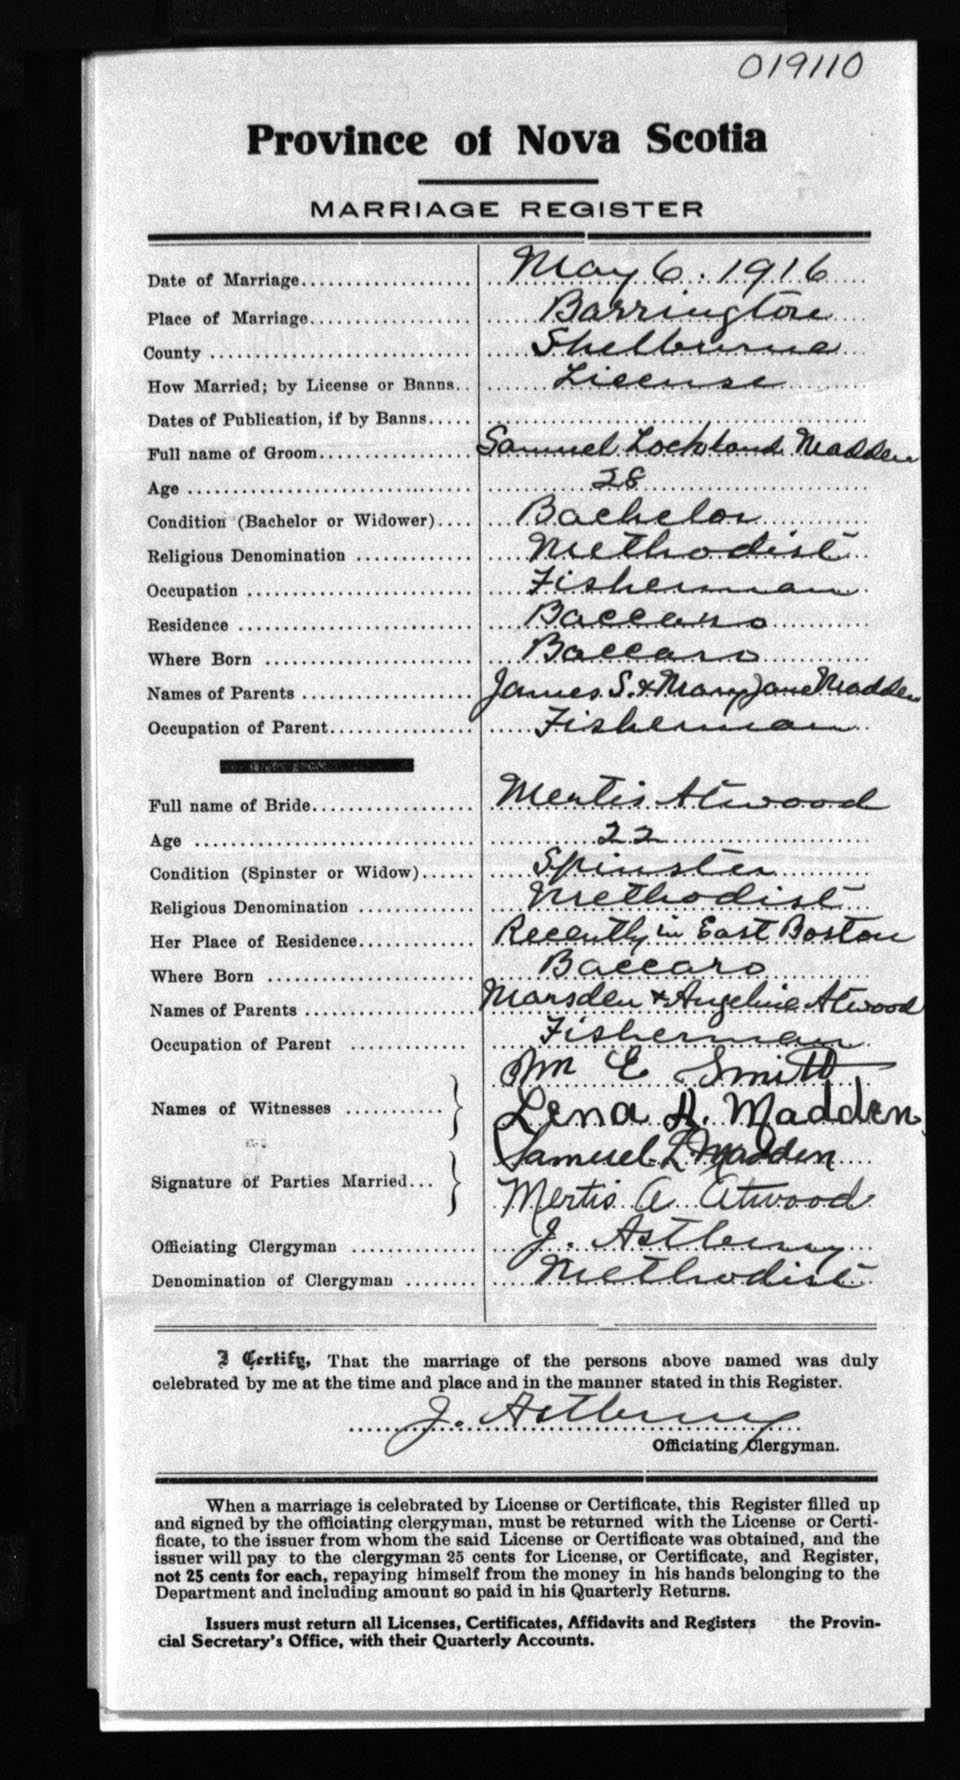 019110
Province of Nova Scotia
MARRIAGE REGISTER
Date of Marriage.................... May 6. 1916
Place of Marriage................... Barrington
County .............................. Shelburne
How Married; by License or Banns.. License
Dates of Publication, if by Banns.....
Full name of Groom.................. Samuel Lockland Madden
Age ................................. 28
Condition (Bachelor or Widower).... Bachelor
Religious Denomination ............. Methodist
Occupation .......................... Fisherman
Residence ........................... Baccaro
Where Born ........................ Baccaro
Names of Parents ................... James S. & Mary Jane Madden
Occupation of Parent................ Fisherman
Full name of Bride................... Mertis Atwood
Age ................................ 22
Condition (Spinster or Widow)...... Spinster
Religious Denomination ............. Methodist
Her Place of Residence............. Recently in East Boston
Where Born ........................ Baccaro
Names of Parents ................... Marsden & Angeline Atwood
Occupation of Parent ............. Fisherman
Wm E Smith
Names of Witnesses ........... } Lena A. Madden
Samuel L Madden
Signature of Parties Married... } Mertis A Atwood
Officiating Clergyman .............. J. Astbury
Denomination of Clergyman ........ Methodist
I Certify, That the marriage of the persons above named was duly
celebrated by me at the time and place and in the manner stated in this Register.
J. Astbury
Officiating Clergyman.
When a marriage is celebrated by License or Certificate, this Register filled up
and signed by the officiating clergyman, must be returned with the License or Certi-
ficate, to the issuer from whom the said License or Certificate was obtained, and the
issuer will pay to the clergyman 25 cents for License, or Certificate, and Register,
not 25 cents for each, repaying himself from the money in his hands belonging to the
Department and including amount so paid in his Quarterly Returns.
Issuers must return all Licenses, Certificates, Affidavits and Registers the Provin-
cial Secretary's Office, with their Quarterly Accounts.